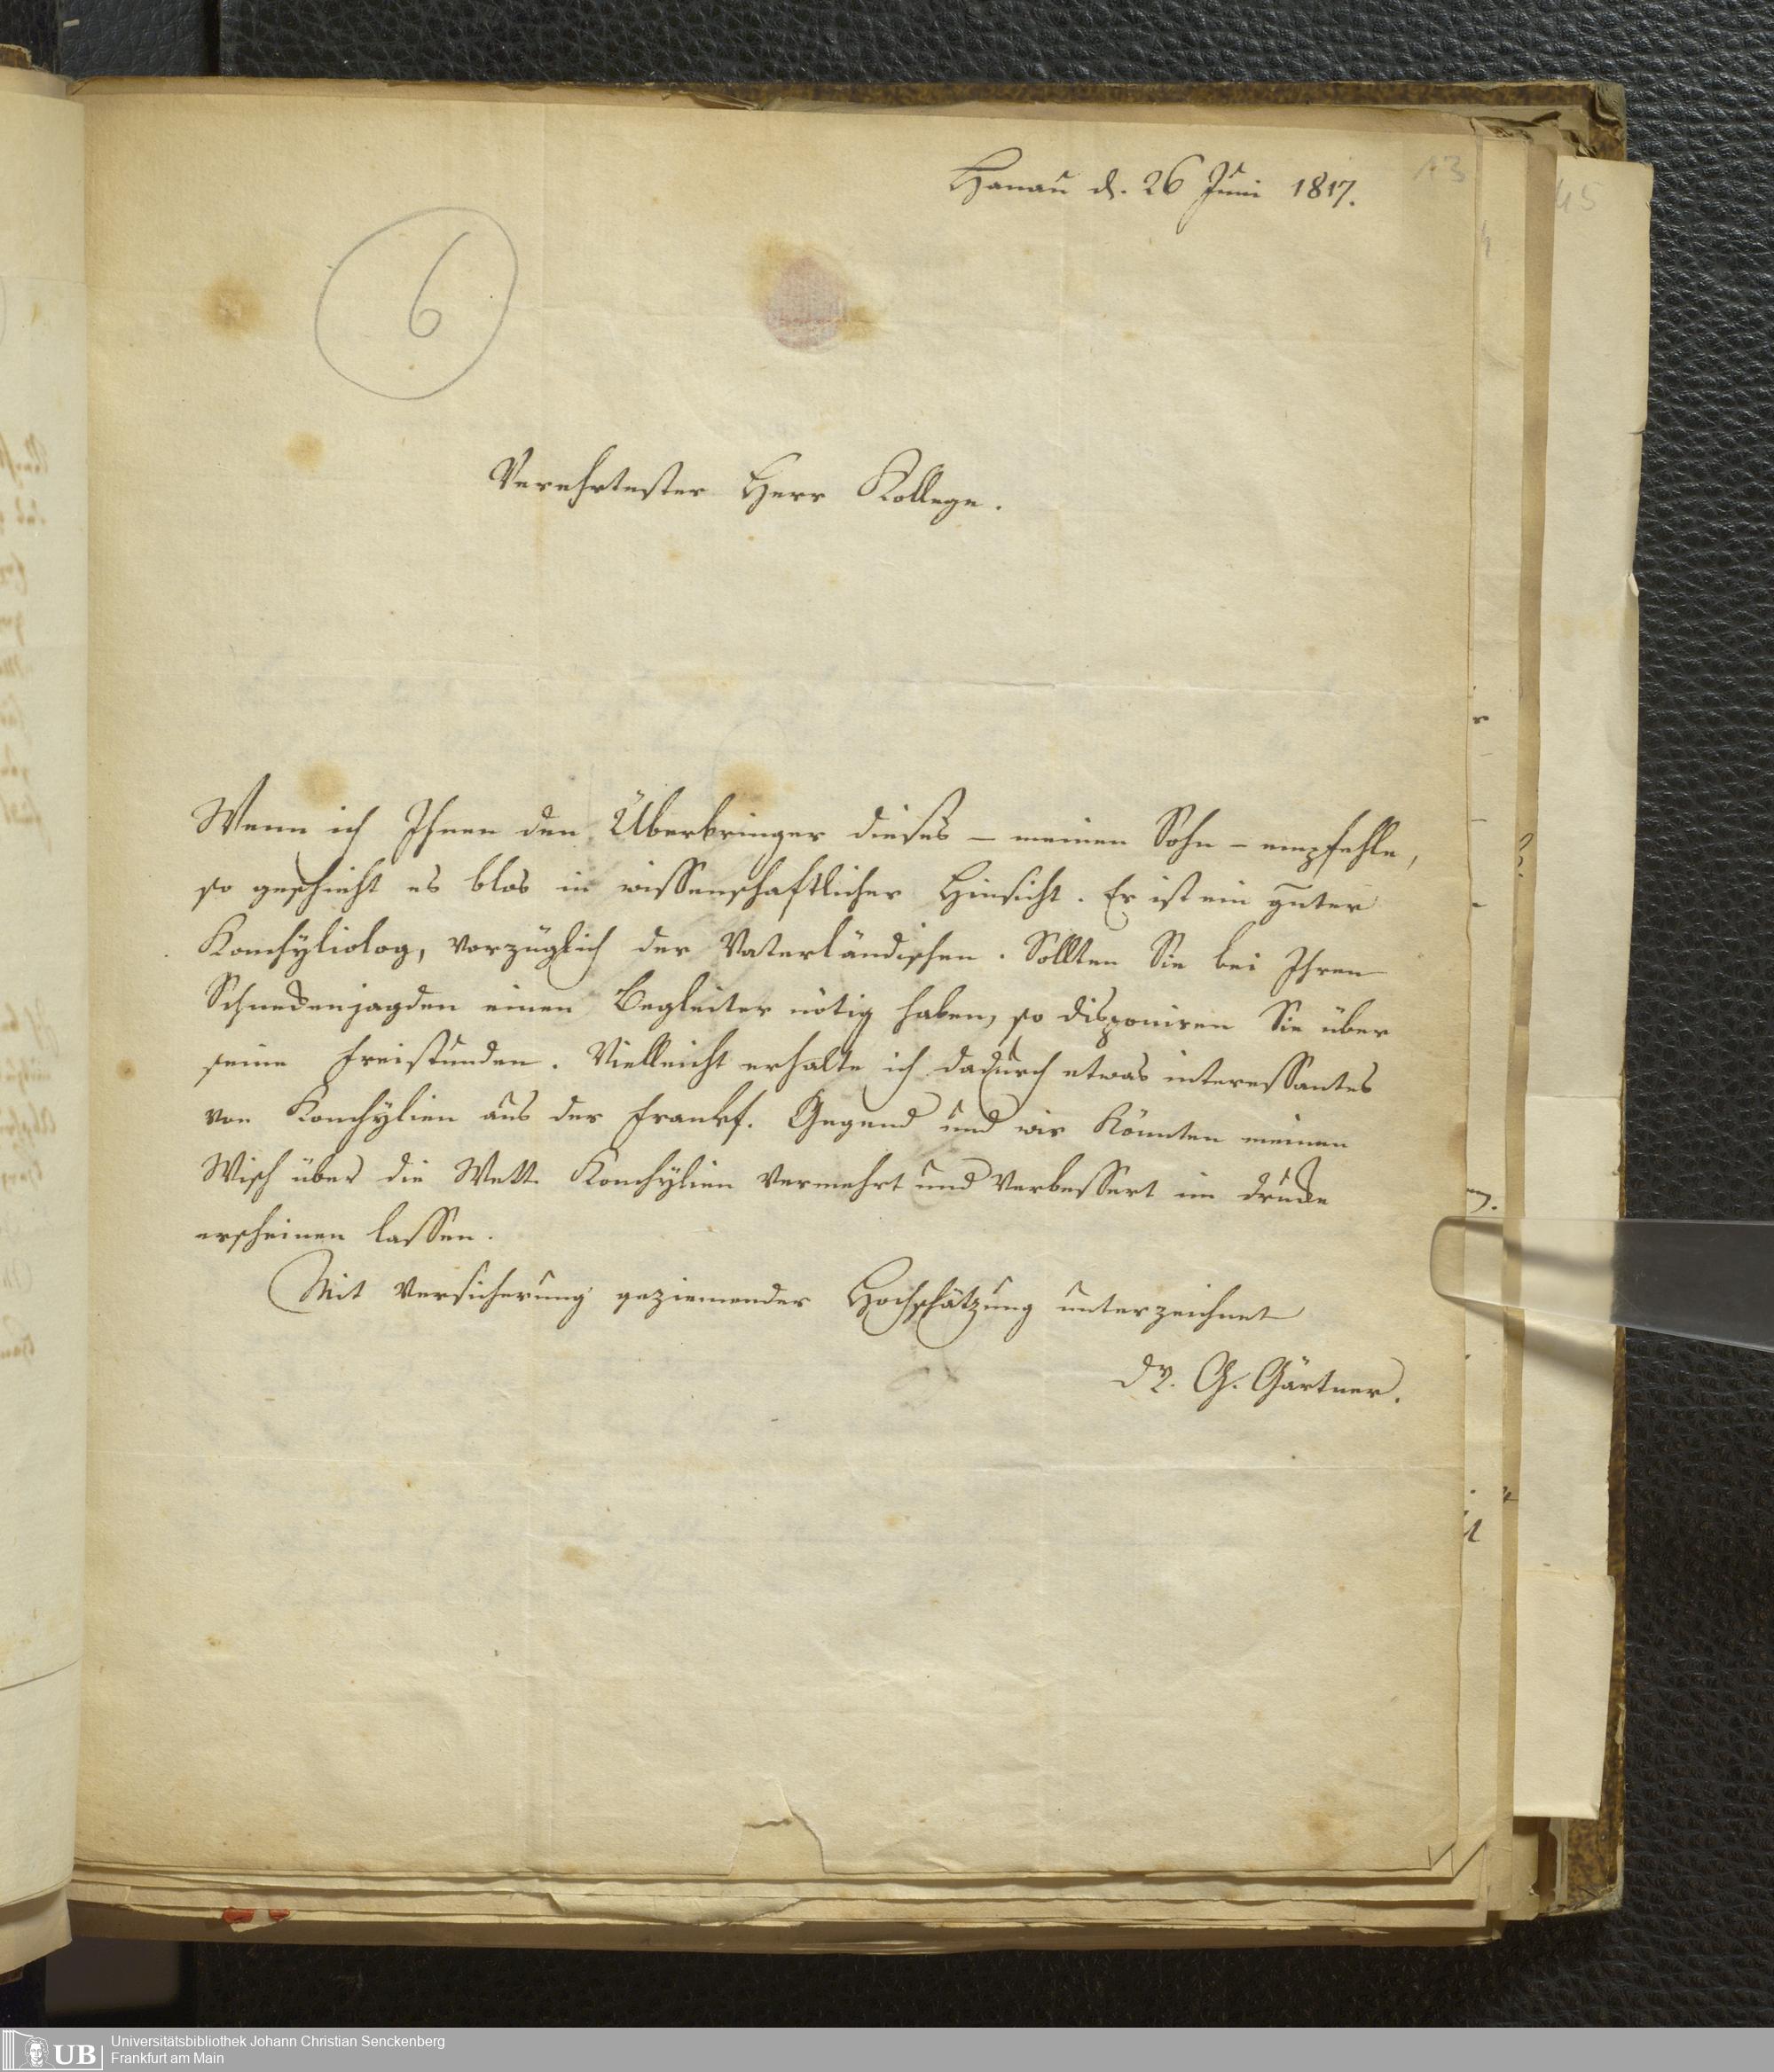 Hanau d. 26 Juni 1817.
13
45
6
Verehrtester Herr Kollege.
Wenn ich Ihnen den Überbringer dieses – meinen Sohn – empfehle,
so geschieht es blos in wissenschaftlicher Hinsicht. Er ist ein guter
Konchÿliolog, vorzüglich der Vaterländischen. Sollten Sie bei Ihren
Schneckenjagden einen Begleiter nötig haben, so disponiren Sie über
seine Freistunden. Vielleicht erhalte ich dadurch etwas interessantes
von Konchÿlien aus der Frankf. Gegend und wir könnten meinen
Wisch über die Wett. Konchÿlien vermehrt und verbessert im Drucke
erscheinen lassen.
Mit Versicherung geziemender Hochschätzung unterzeichnet
Dr. G. Gärtner.
UB
Universitätsbibliothek Johann Christian Senckenberg
Frankfurt am Main